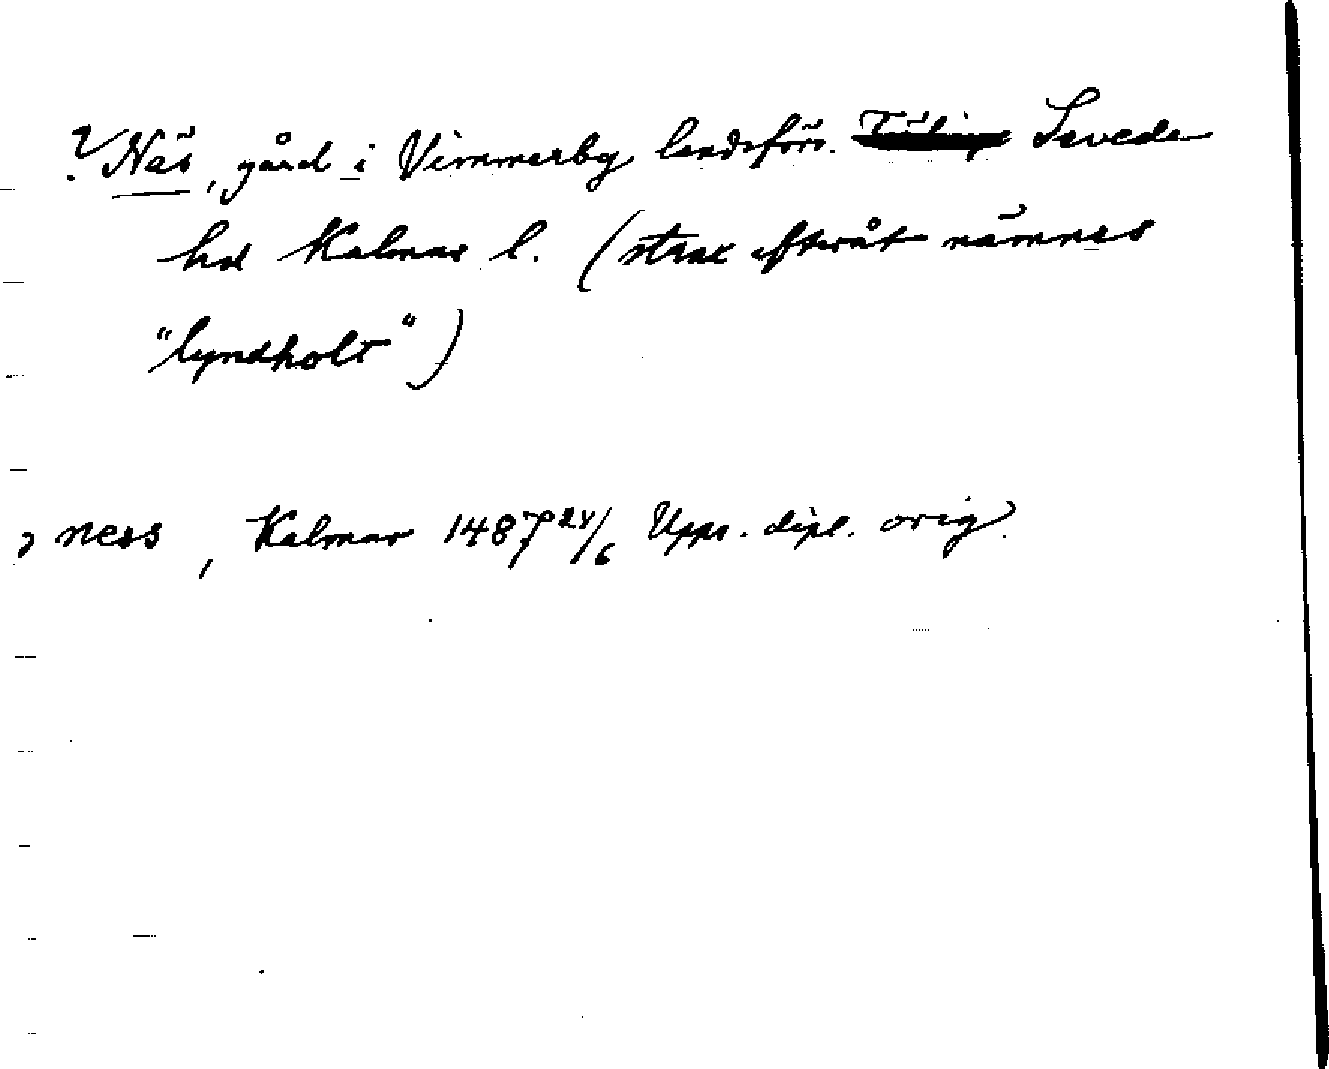 ? Näs, gård i Vimmerby landsförs. Sevede
hd Kalmar l. (strax efteråt nämnes
"lyndholt")
ness, Kalmar 1487 24/6 Upps. dipl. orig.